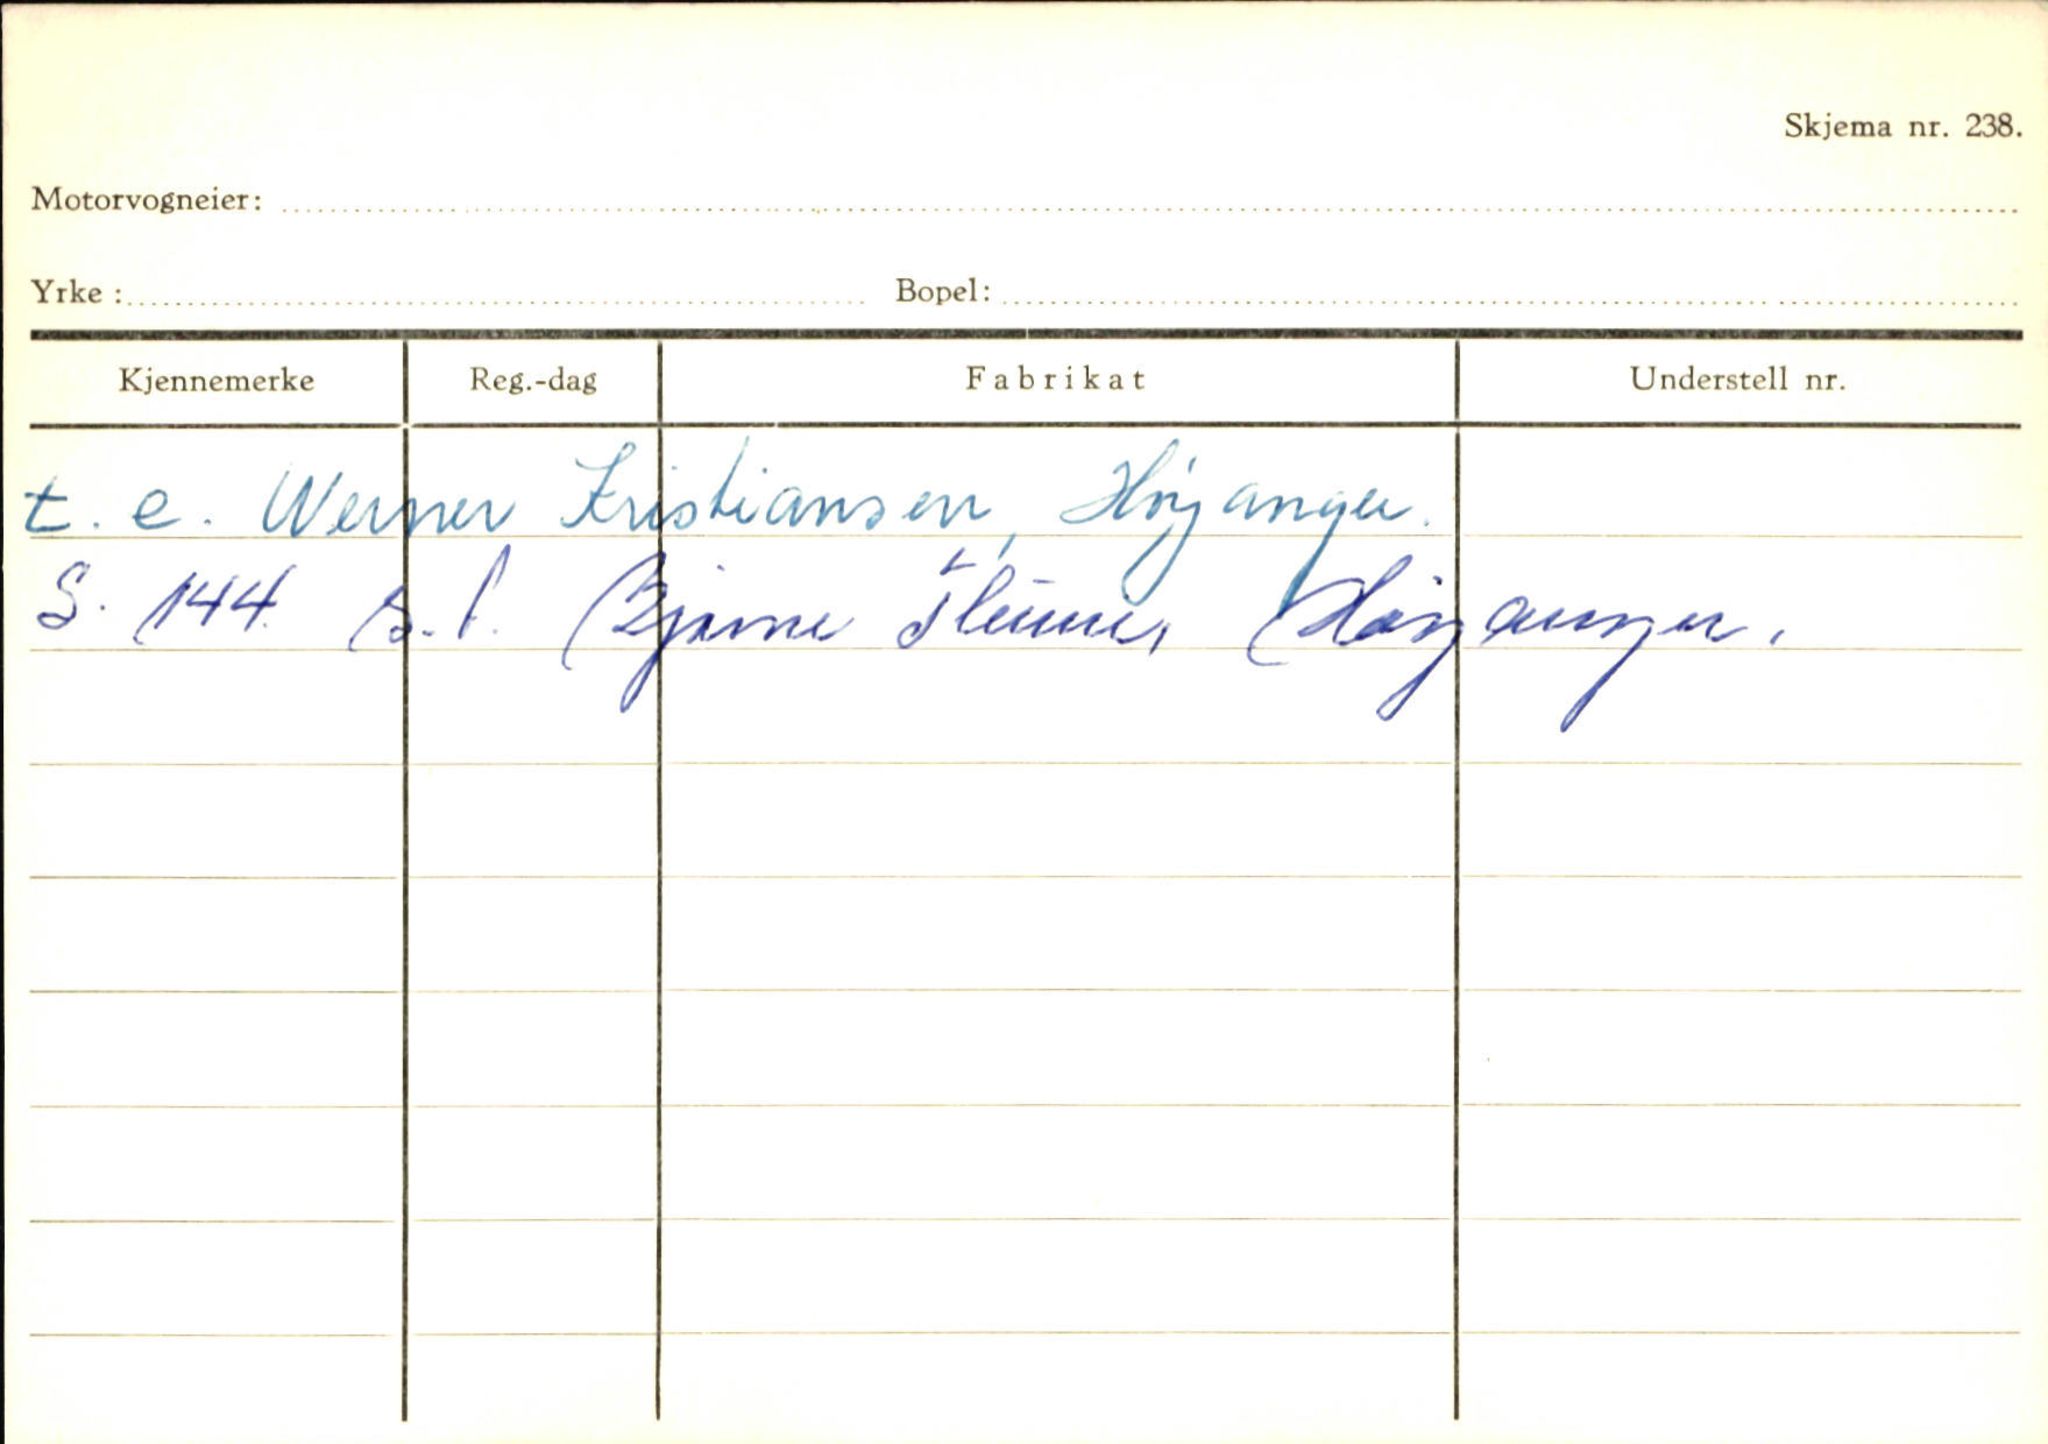 Skjema nr. 238.
Motorvogneier:
Yrke : Bopel:
Kjennemerke Reg.-dag Fabrikat Understell nr.
t. e. Werner Kristiansen, Høyanger.
S. 144. s. f. Bjarne Høyanger.